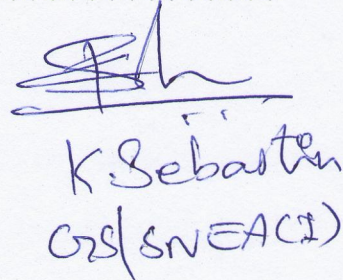 K. Sebastin
GS(SNEA(I)